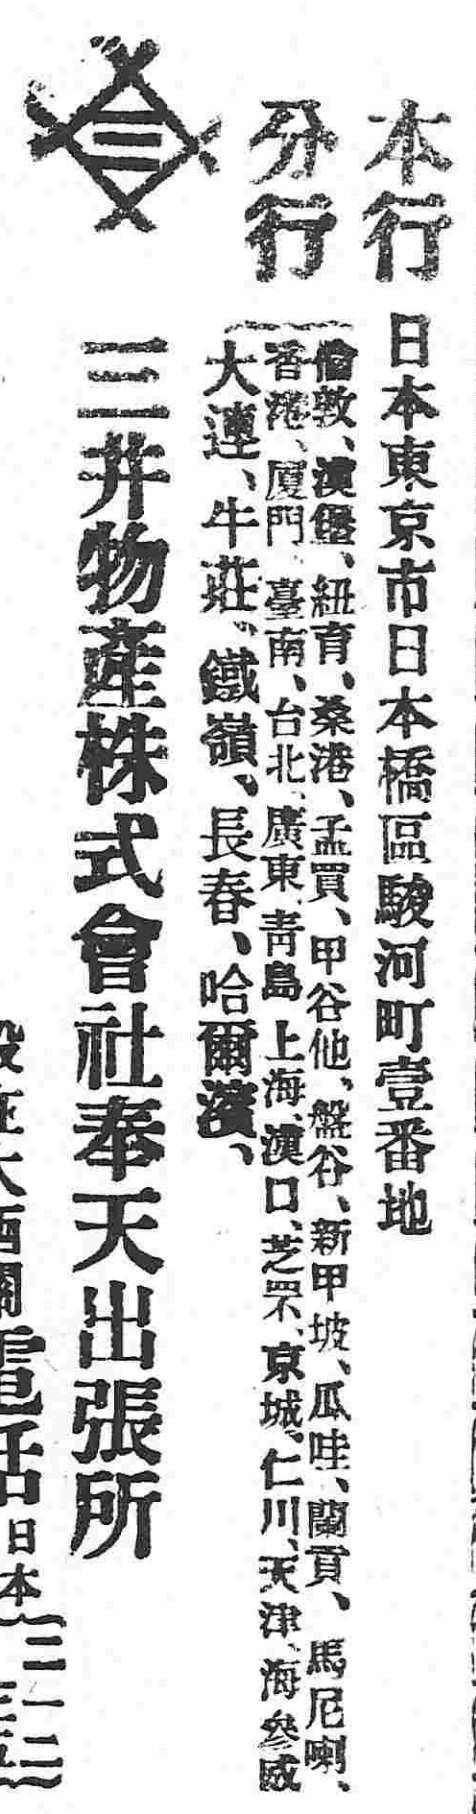 本行 日本東京市日本橋區駿河町壹番地
分行
倫敦、漢堡、紐育、桑港、孟買、甲谷他、盤谷、新甲坡、瓜哇、蘭貢、馬尼喇、
香港、厦門、臺南、台北、廣東、靑島、上海、漢口、芝罘、京城、仁川、天津、海參威
大連、牛莊、鐵嶺、長春、哈爾濱、
三井物產株式會社奉天出張所
電話日本